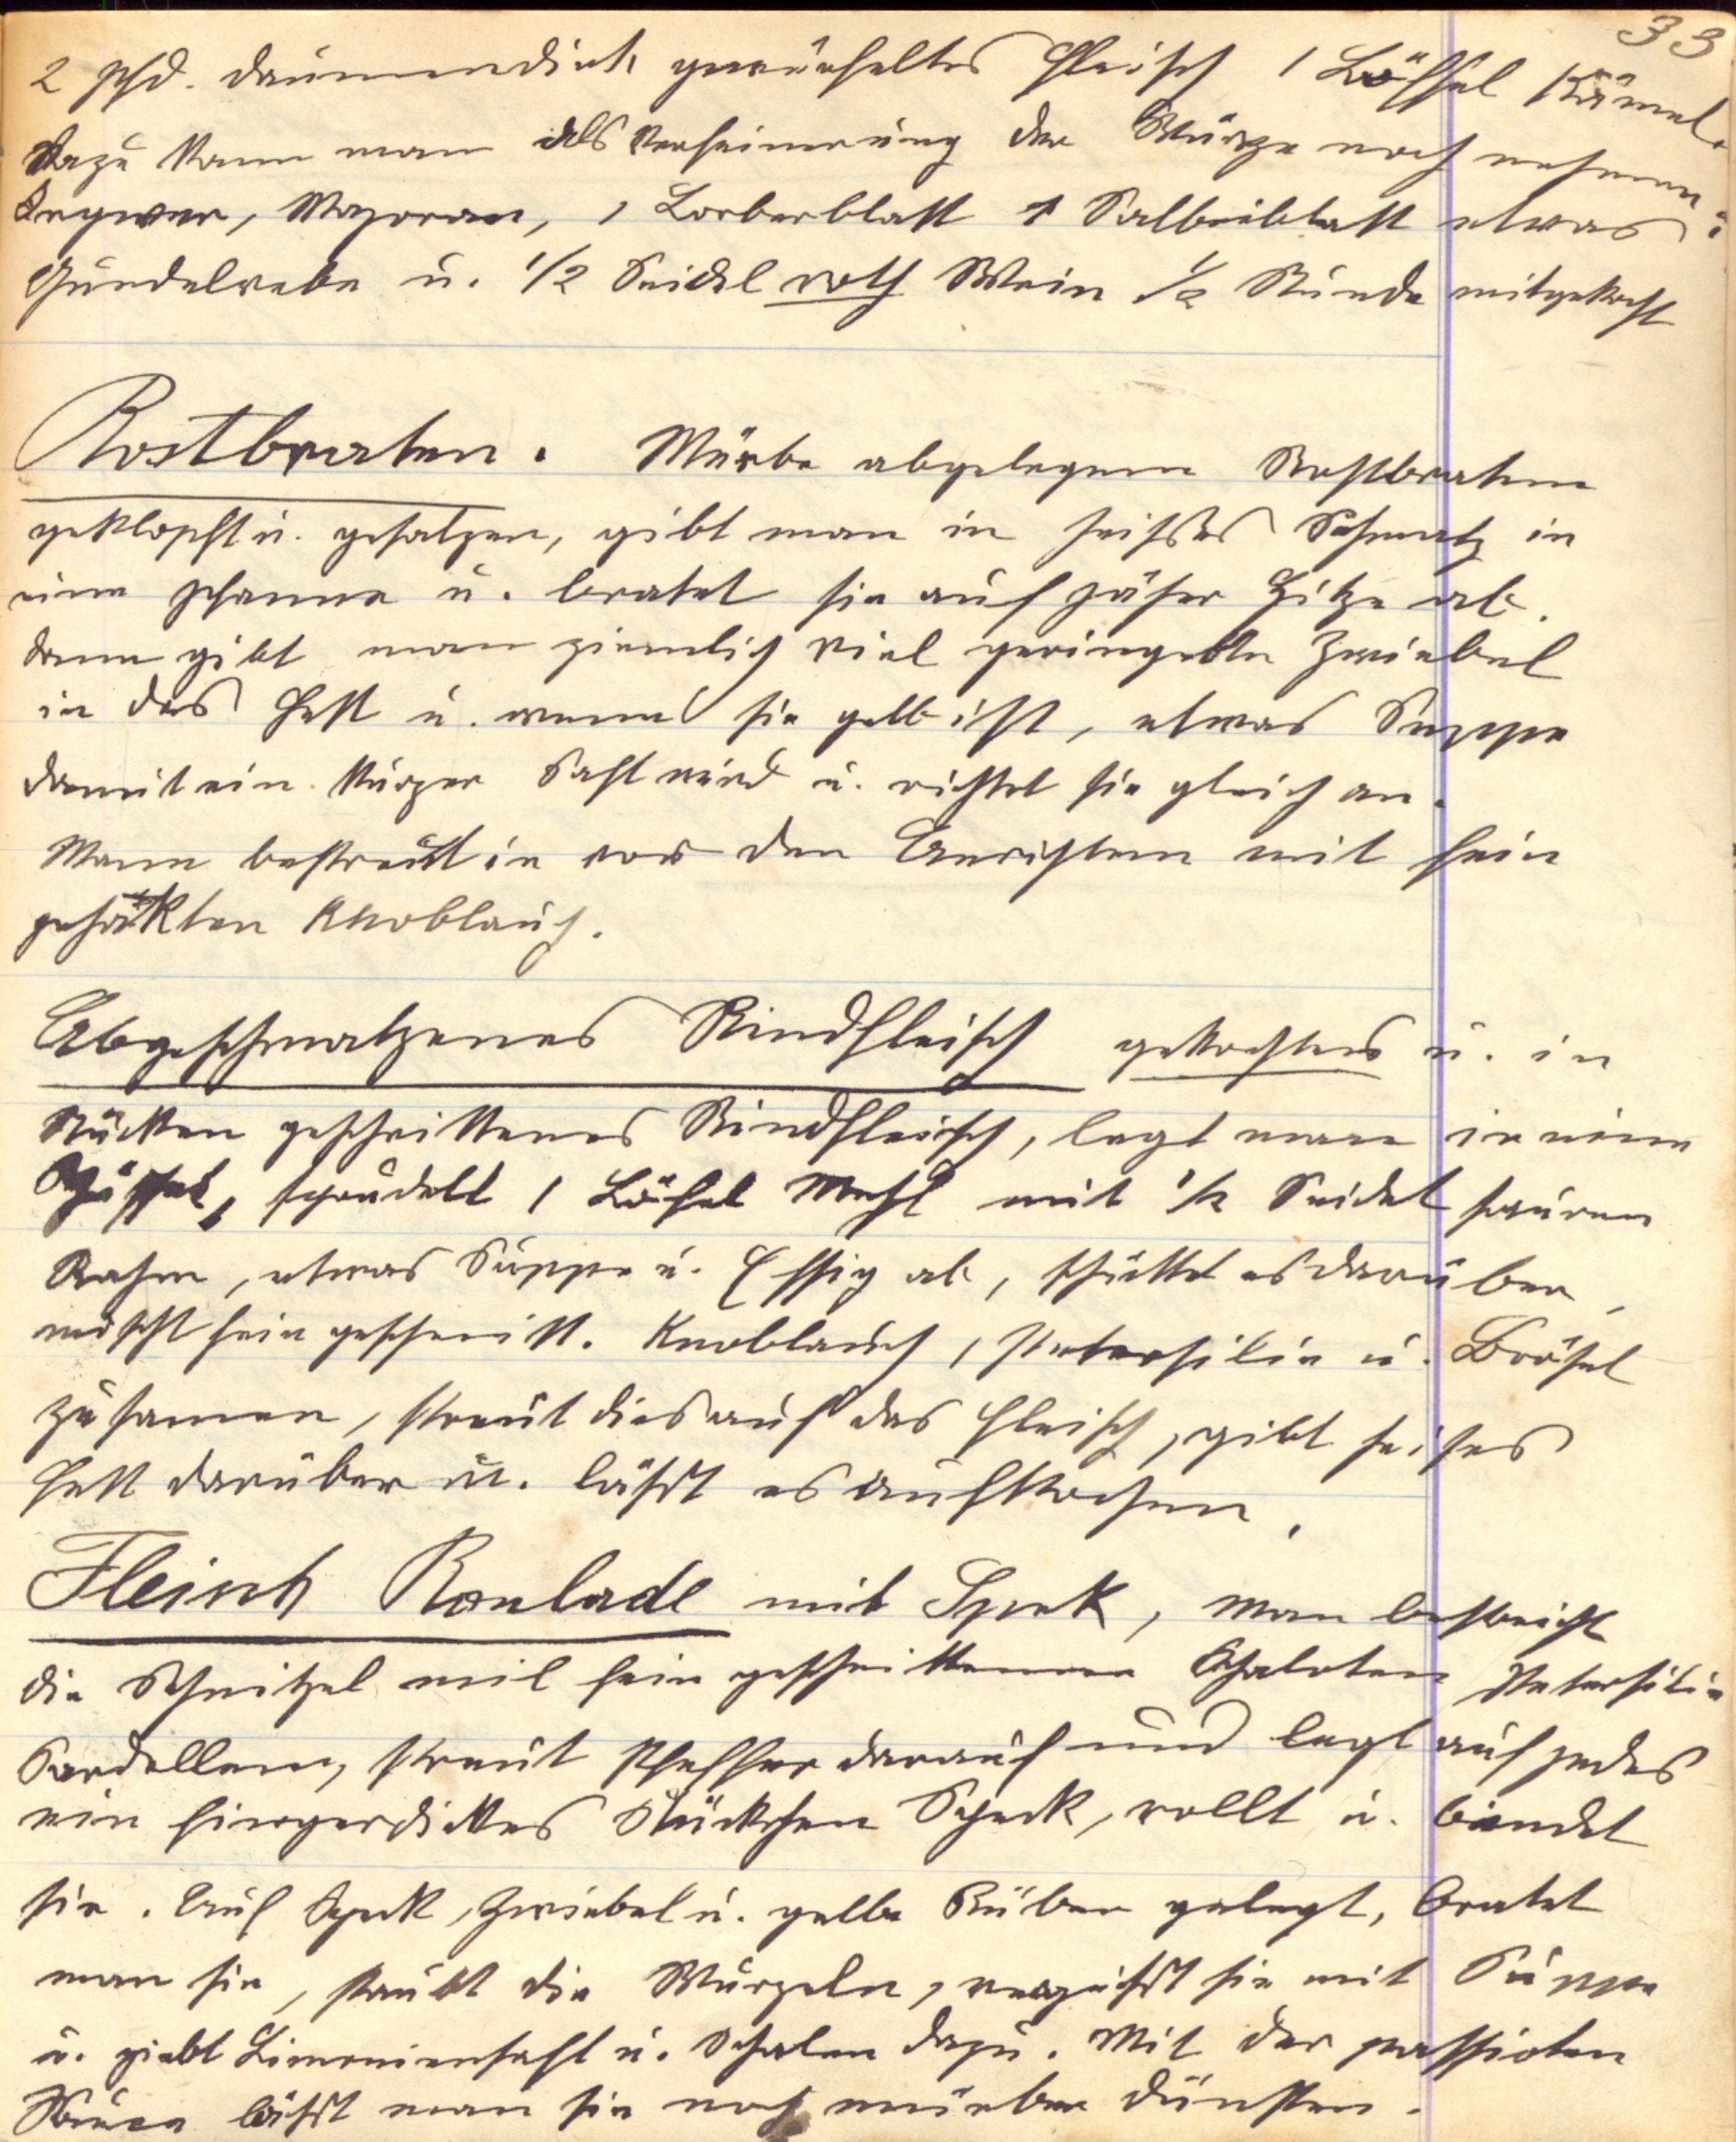 33
2 Pfd. daumendick gewürfeltes Fleisch 1 Löffel Kümel.
Dazu kann man als Verfeinerung der Würze noch nehmen:
Ingwer, Majoran, 1 Lorberblatt 1 Salbeiblatt etwas
Gundelrebe u. 1/2 Seidel roth Wein 1/2 Stunde mitgekocht
Rostbraten. Mürbe abgelegene Rostbraten
geklopft u. gesalzen, gibt man in heißes Schmalz in
eine Pfanne u. bratet sie auf jäher Hitze ab.
dann gibt man ziemlich viel geringelte Zwiebel
in das Fett u. wenn sie gelb ist, etwas Suppe
damit ein kurzer Saft wird u. richtet sie gleich an.
Mann bestreut in vor den Anrichten mit fein
gehäkten Knoblauch.
Abgeschmalzenes Rindfleisch gekochtes u. in
Stücken geschnittenes Rindfleisch, legt man in eine
Schüssel, sprudelt 1 Löfel Mehl mit 1/2 Seidel sauren
Rahm, etwas Suppe u. Essig ab, schüttet es darüber,
mischt fein geschnitt. Knoblauch, Petersilie u. Brösel
zusamen, streut dies auf das Fleisch, gibt heises
Fett darüber u. läßt es aufkochen.
Fleisch Roulade mit Spek, man bestreicht
die Schnitzel mit fein geschnittenen Schaloten Petersilie
Sardellen, streut Pfeffer darauf und legt auf jedes
ein fingerdickes Stückchen Speck, rollt u. bindet
sie. Auf Speck, Zwiebel u. gelbe Rüben gelegt, bratet
man sie, staubt die Wurzeln, vergießt sie mit Suppe
u. giebt Limoniensaft u. Schalen dazu. Mit der passirten
Sauce läßt man sie noch mürbe dünsten.